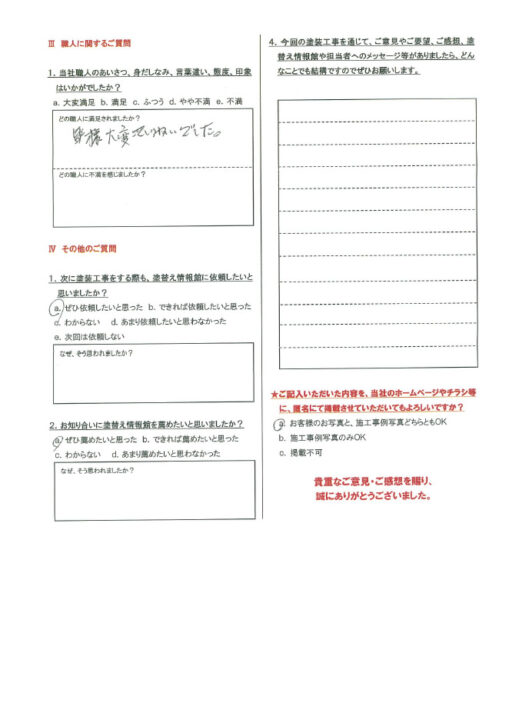 Ⅲ 職人に関するご質問
1. 当社職人のあいさつ、身だしなみ、言葉遣い、態度、印象
はいかがでしたか？
a. 大変満足 b. 満足 c. ふつう d. やや不満 e. 不満
どの職人に満足されましたか？
皆様大変
でした。
どの職人に不満を感じましたか？
Ⅳ その他のご質問
1. 次に塗装工事をする際も、塗替え情報館に依頼したいと
思いましたか？
a. ぜひ依頼したいと思った b. できれば依頼したいと思った
c. わからない d. あまり依頼したいと思わなかった
e. 次回は依頼しない
なぜ、そう思われましたか？
2. お知り合いに塗替え情報館を薦めたいと思いましたか？
a. ぜひ薦めたいと思った b. できれば薦めたいと思った
c. わからない d. あまり薦めたいと思わなかった
なぜ、そう思われましたか？
4. 今回の塗装工事を通じて、ご意見やご要望、ご感想、塗
替え情報館や担当者へのメッセージ等がありましたら、どん
なことでも結構ですのでぜひお願いします。
★ご記入いただいた内容を、当社のホームページやチラシ等
に、匿名にて掲載させていただいてもよろしいですか？
a. お客様のお写真と、施工事例写真どちらともOK
b. 施工事例写真のみOK
c. 掲載不可
貴重なご意見・ご感想を賜り、
誠にありがとうございました。